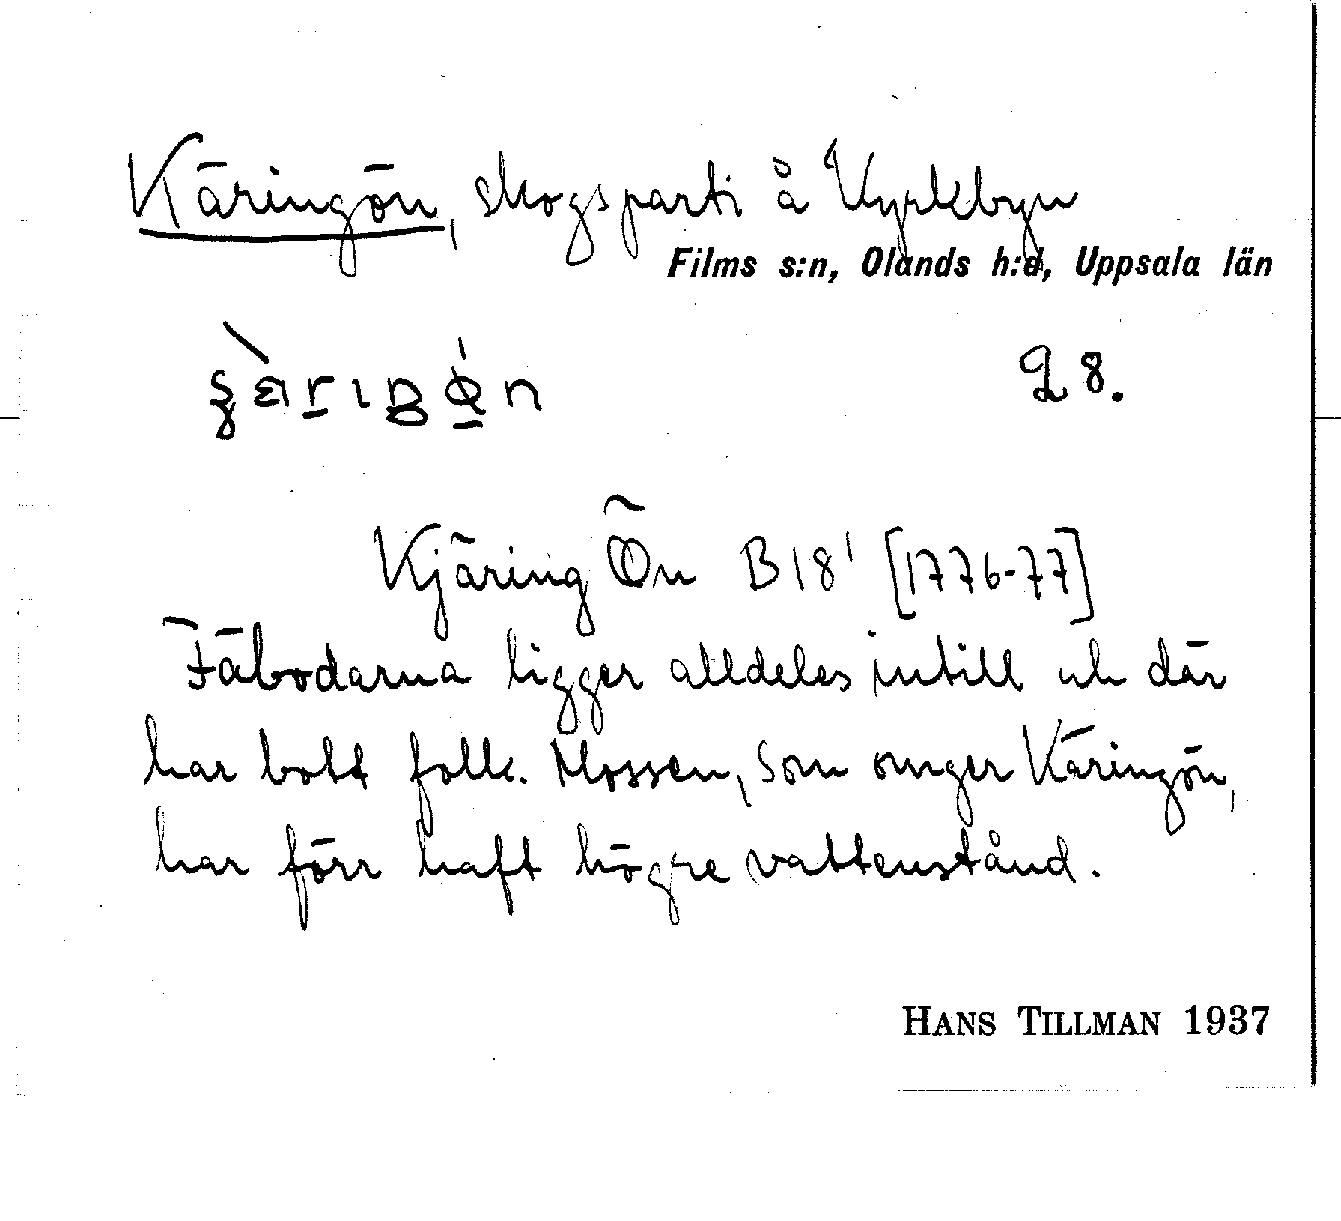 Käringön, skogsparti å Kyrkbyn
Films s:n, Olands h:d, Uppsala län
28.
Kjäring Ön B18' [1776-77]
Fäbodarna ligger alldeles intill och där
har bott folk. Mossen, som omger Käringön,
har förr haft högre vattenstånd.
HANS TILLMAN 1937